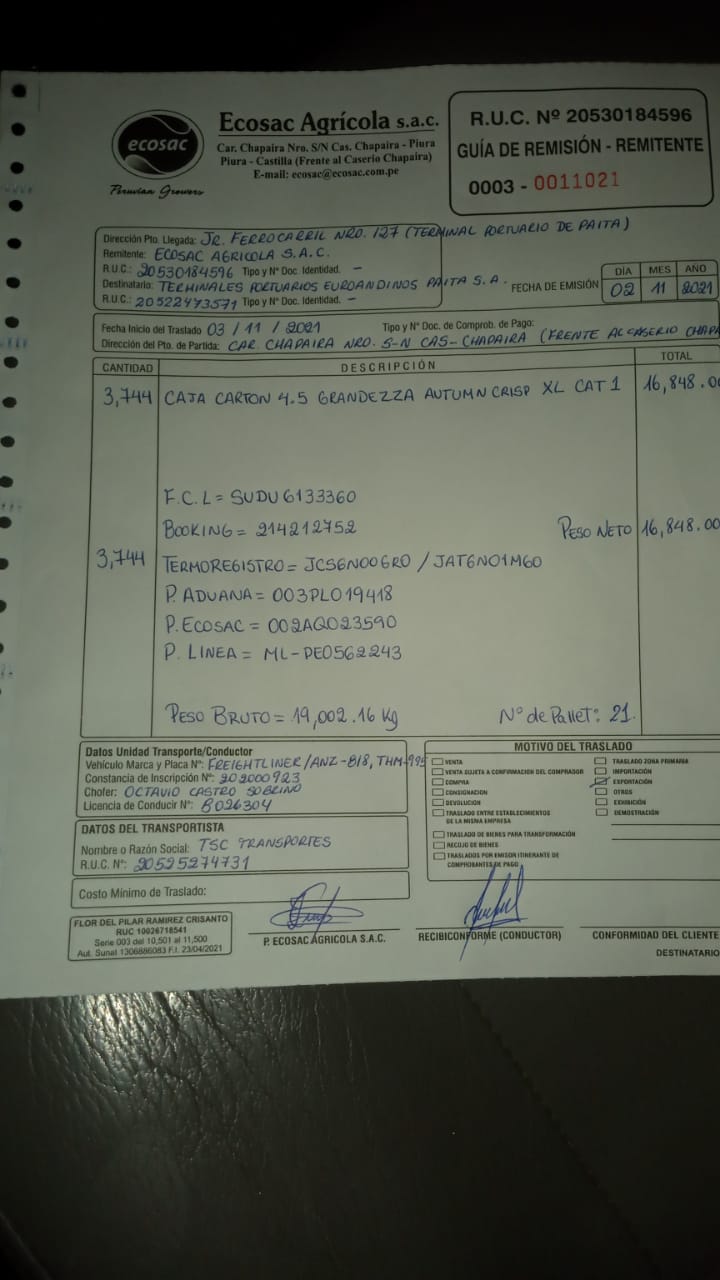 ecosac
Peruvian Growers
Ecosac Agrícola s.a.c.
Car. Chapaira Nro. S/N Cas. Chapaira - Piura
Piura - Castilla (Frente al Caserio Chapaira)
E-mail: ecosac@ecosac.com.pe
R.U.C. Nº 20530184596
GUÍA DE REMISIÓN - REMITENTE
0003 - 0011021
Dirección Pto. Llegada: JR. FERROCARRIL NRO. 127 (TERMINAL PORTUARIO DE PAITA)
Remitente: ECOSAC AGRICOLA S.A.C.
R.U.C.: 20530184596 Tipo y Nº Doc. Identidad. -
Destinatario: TERMINALES PORTUARIOS EUROANDINOS PAITA S.A.
R.U.C.: 20522473571 Tipo y Nº Doc. Identidad. -
FECHA DE EMISIÓN
DÍA MES AÑO
02 11 2021
Fecha Inicio del Traslado 03 / 11 / 2021 Tipo y Nº Doc. de Comprob. de Pago:
Dirección del Pto. de Partida: CAR. CHAPAIRA NRO. S-N CAS- CHAPAIRA (FRENTE AL CASERIO CHAPA
CANTIDAD DESCRIPCIÓN TOTAL
3,744 CAJA CARTON 4.5 GRANDEZZA AUTUMN CRISP XL CAT 1 16,848.00
F.C.L = SUDU6133360
BOOKING = 214212752 PESO NETO 16,848.00
3,744 TERMOREGISTRO = JCS6N006R0 / JAT6N01M60
P. ADUANA = 003PL019418
P. ECOSAC = 002AQ023590
P. LINEA = ML-PE0562243
PESO BRUTO = 19,002.16 Kg Nº de Pallet: 21.
Datos Unidad Transporte/Conductor
Vehículo Marca y Placa Nº: FREIGHTLINER/ANZ-818, THM-995
Constancia de Inscripción Nº: 202000923
Chofer: OCTAVIO CASTRO SOBRINO
Licencia de Conducir Nº: B026304
DATOS DEL TRANSPORTISTA
Nombre o Razón Social: TSC TRANSPORTES
R.U.C. Nº: 20525274731
Costo Mínimo de Traslado:
MOTIVO DEL TRASLADO
VENTA
VENTA SUJETA A CONFIRMACION DEL COMPRADOR
COMPRA
CONSIGNACION
DEVOLUCION
TRASLADO ENTRE ESTABLECIMIENTOS
DE LA MISMA EMPRESA
TRASLADO DE BIENES PARA TRANSFORMACIÓN
RECOJO DE BIENES
TRASLADOS POR EMISOR ITINERANTE DE
COMPROBANTES DE PAGO
TRASLADO ZONA PRIMARIA
IMPORTACIÓN
EXPORTACIÓN
OTROS
EXHIBICIÓN
DEMOSTRACIÓN
FLOR DEL PILAR RAMIREZ CRISANTO
RUC 10026718541
Serie 003 del 10,501 al 11,500
Aut. Sunat 1306886083 F.I. 23/04/2021
P. ECOSAC AGRICOLA S.A.C.
RECIBI CONFORME (CONDUCTOR)
CONFORMIDAD DEL CLIENTE
DESTINATARIO